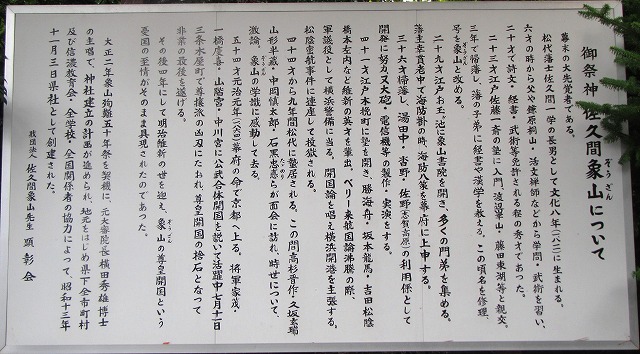 御祭神佐久間象山について
ぞうざん
幕末の大先覚者である。
松代藩士佐久間一学の長男として文化八年(一八一一)に生まれる。
六才の時から父や鎌原桐山・活文禅師などから学問・武術を習い、
二十才で詩文・経書・武術等免許される程の秀才であった。
二十三才江戸佐藤一斎の塾に入門、渡辺崋山・藤田東湖等と親交。
三年で帰藩し、藩の子弟に経書や漢学を教える。この頃名を修理、
号を象山と改める。
二十九才江戸お玉ヶ池に象山書院を開き、多くの門弟を集める。
藩主幸貫老中で海防掛の時、海防八策を幕府に上申する。
三十六才帰藩し、湯田中・沓野・佐野(志賀高原)の利用係として
開発に努力又大砲・電信機等の製作・実演をする。
四十一才江戸木挽町に塾を開き、勝海舟・坂本龍馬・吉田松陰
橋本左内など維新の英才を輩出。ペリー来航国論沸騰の際、
軍議役として横浜警備に当る。開国論を唱え横浜開港を主張する。
松陰密航事件に連座して投獄される。
四十四才から九年間松代に蟄居される。この間高杉晋作・久坂玄瑞
山形半蔵・中岡慎太郎・石黒忠悳らが面会に訪れ、時世について、
ただのり
激論。象山の学識に感動して去る。
五十四才元治元年(一八六四)幕府の命で京都へ上る。将軍家茂・
一橋慶喜・山階宮・中川宮に公武合体開国を説いて活躍中七月十一日
三条木屋町で尊攘派の凶刃にたおれ、尊皇開国の捨石となって
非業の最後を遂げる。
その後四年にして明治維新の世を迎え、象山の尊皇開国という
ぞうざん
憂国の至情がそのまま具現されたのであった。
大正二年象山殉難五十年祭を契機に、元大審院長横田秀雄博士
の主唱で、神社建立の計画が進められ、地元をはじめ県下全市町村
及び信濃教育会・全学校・全国関係者の協力によって、昭和十三年
十一月三日県社として創建された。
財団法人 佐久間象山先生 顕彰会